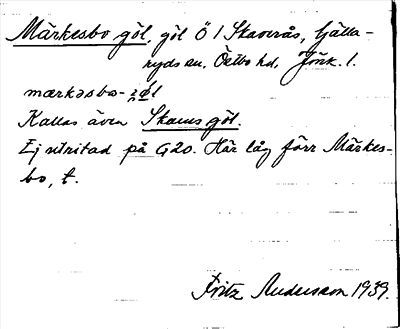 Märkesbo göl, göl Ö / Skaverås, Gjälla-
ryds sn, Östbo hd, Jönk. l.
mærkəsbo- jøl
Kallas även Skams göl.
Ej utritad på G20. Här låg förr Märkes-
bo, t.
Fritz Andersson 1939.